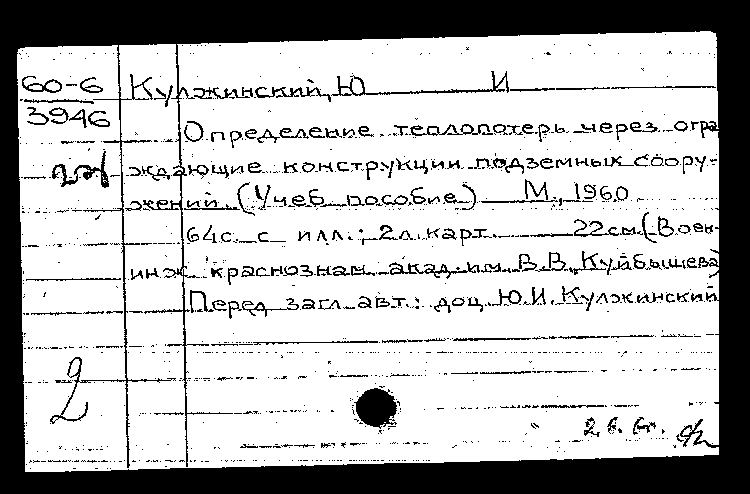 60-6
3946
Кулжинский, Ю И
Определение теплопотерь через огра
ждающие конструкции подземных соору-
жений. (Учеб пособие) М., 1960
64с. с илл.; 2л. карт. 22см. (Воен-
инж краснознам акад. им. В.В. Куйбышева)
Перед загл. авт.: доц. Ю.И. Кулжинский
2